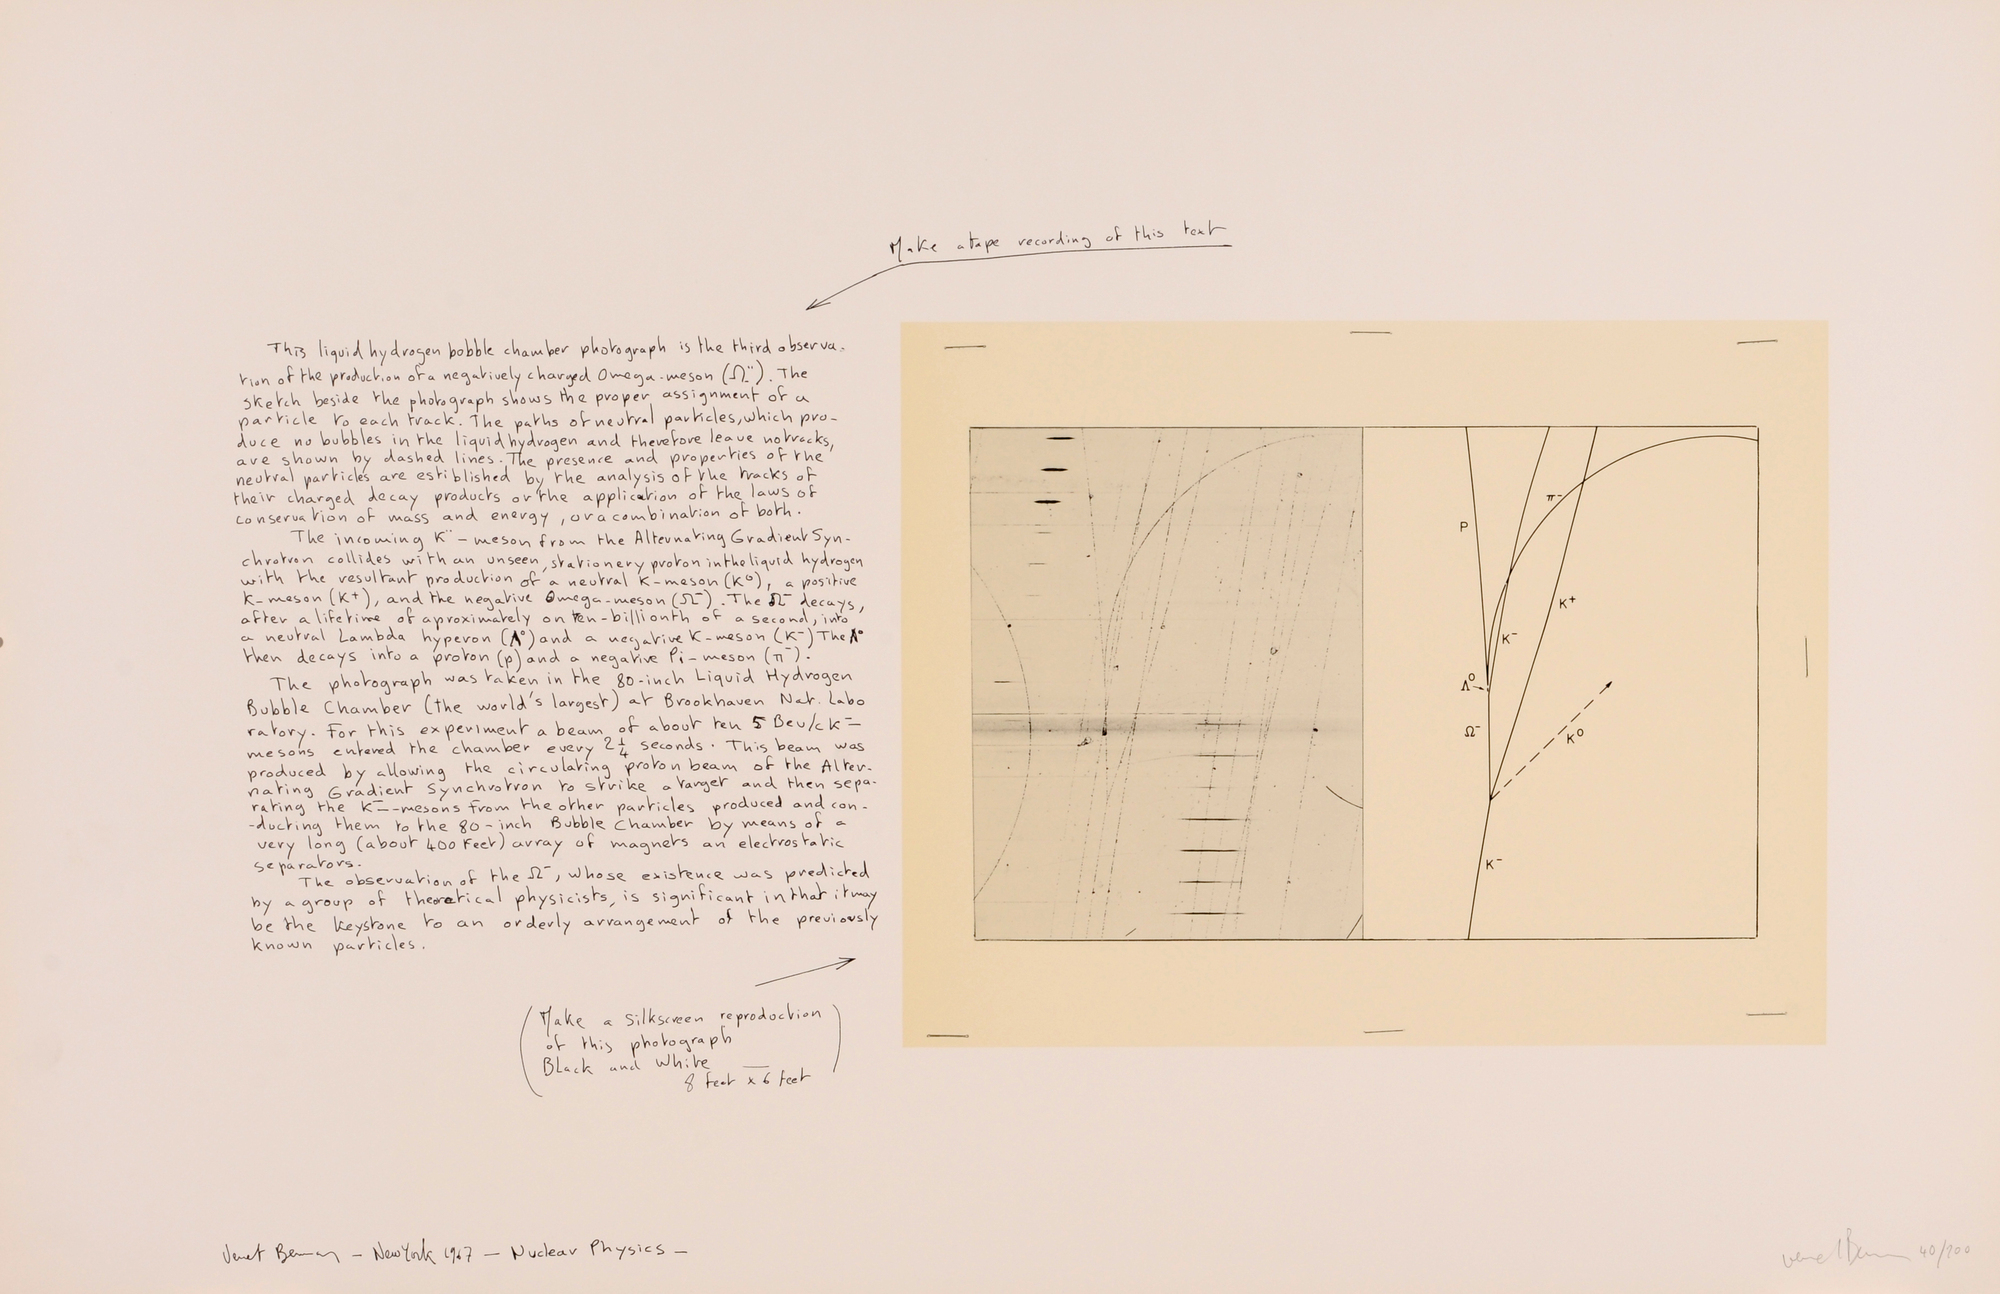 Make a tape recording of this text
This liquid hydrogen bobble chamber photograph is the third observa-
tion of the production of a negatively charged Omega-meson (Ω⁻). The
sketch beside the photograph shows the proper assignment of a
particle to each track. The paths of neutral particles, which pro-
duce no bubbles in the liquid hydrogen and therefore leave no tracks,
are shown by dashed lines. The presence and properties of the
neutral particles are estiblished by the analysis of the tracks of
their charged decay products or the application of the laws of
conservation of mass and energy, or a combination of both.
The incoming K⁻-meson from the Alternating Gradient Syn-
chrotron collides with an unseen, stationery proton in the liquid hydrogen
with the resultant production of a neutral K-meson (K⁰), a positive
K-meson (K+), and the negative Omega-meson (Ω⁻). The Ω⁻ decays,
after a lifetime of aproximately on ten-billionth of a second, into
a neutral Lambda hyperon (Λ°) and a negative K-meson (K⁻) The Λ°
then decays into a proton (p) and a negative Pi-meson (π⁻).
The photograph was taken in the 80-inch Liquid Hydrogen
Bubble Chamber (the world's largest) at Brookhaven Nat. Labo
ratory. For this experiment a beam of about ten 5 Bev/c K⁻
mesons entered the chamber every 2¼ seconds. This beam was
produced by allowing the circulating proton beam of the Alter-
nating Gradient Synchrotron to strike a target and then sepa-
rating the K⁻-mesons from the other particles produced and con-
-ducting them to the 80-inch Bubble Chamber by means of a
very long (about 400 Feet) array of magnets an electrostatic
separators.
The observation of the Ω⁻, whose existence was predicted
by a group of theoretical physicists, is significant in that it may
be the keystone to an orderly arrangement of the previously
known particles.
(Make a Silkscreen reproduction
of this photograph
Black and White
8 feet x 6 feet)
π⁻
P
K+
K⁻
Λ⁰
Ω⁻
K⁰
K⁻
Venet Bernar - New York 1967 - Nuclear Physics -
40/100